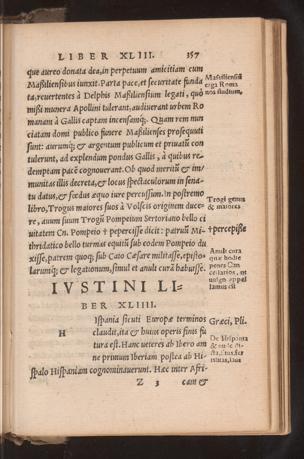 LIBER XLIII. 357
que aureo donata dea, in perpetuum amicitiam cum
Masiliensibus iunxit. Parta pace, et securitate funda
ta, reuertentes à Delphis Masiliensium legati, quò
missi munera Apollini tulerant, audiuerant urbem Ro
manam à Gallis captam incensamq;. Quam rem nun
ciatam domi publico funere Masilienses prosequuti
sunt: aurumq; & argentum publicum et priuatū con
tulerunt, ad explendum pondus Gallis, à quibus re
demptam pacē cognouerant. Ob quod meritū & im/
munitas illis decreta, & locus spectaculorum in sena
tu datus, & fœdus æquo iure percussum. In postremo
libro, Trogus maiores suos à Volscis originem duce/
re, auum suum Trogū Pompeium Sertoriano bello ci
uitatem Cn. Pompeio † pepercisse dicit: patruū Mi
thridatico bello turmas equitū sub eodem Pompeio du
xisse, patrem quoq; sub Caio Cæsare militasse, episto/
larumq;, & legationum, simul et anuli curā habuisse.
Massiliensiū
erga Roma
nos studium,
Trogi genus
& maiores
† percepisse
Anuli cura
quæ hodie
penes Can
cellarios, ut
uulgò appel
lamus est
IVSTINI LI-
BER XLIIII.
HIspania sicuti Europæ terminos
claudit, ita & huius operis finis fu
tura est. Hanc ueteres ab Ibero am
ne primum Iberiam, postea ab Hi/
spalo Hispaniam cognominauerunt. Hæc inter Afri/
Græci, Pli.
De Hispania
Z 3 cam &